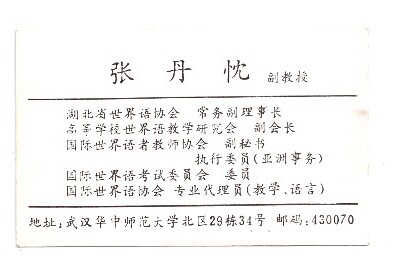 张丹忱 副教授
湖北省世界语协会 常务副理事长
高等学校世界语教学研究会 副会长
国际世界语者教师协会 副秘书
执行委员(亚洲事务)
国际世界语考试委员会 委员
国际世界语协会 专业代理员(教学、语言)
地址:武汉华中师范大学北区29栋34号 邮码:430070